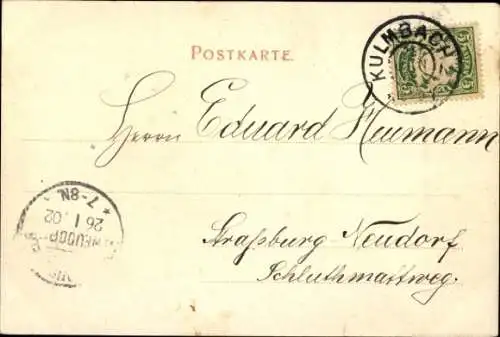 POSTKARTE.
KULMBACH
Herrn Eduard Naumann
Straßburg Neudorf
Schluthmattweg.
7-8N.
26 1 02
NEUDORF